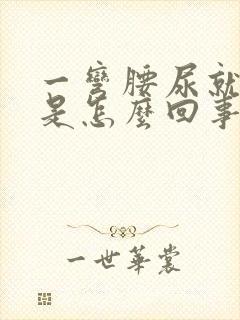 一彎腰尿就
是怎麼回事
一世華裳